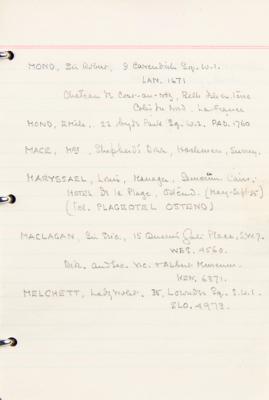 MOND, Sir Robert, 9 Cavendish Sq. W.1.
LAN. 1671
Chateau de
Côtes du Nord. La France
MOND, Emile, 22 Hyde Park Sq. W.2. PAD. 1760
MACE, Mrs, Shepherd's Hill, Haslemere, Surrey.
MARYSSAEL, Louis, Manager,
HOTEL de la Plage, Ostend. (May-Sept. 35)
(Tel. PLAGEOTEL OSTEND)
MACLAGAN, Sir Eric, 15 Queen's Gate Place, S.W.7.
WES. 4560.
Dir. and Sec. Vic. & Albert Museum.
KEN. 6371.
MELCHETT, Lady Violet. 35, Lowndes Sq. S.W.1.
SLO. 4973.